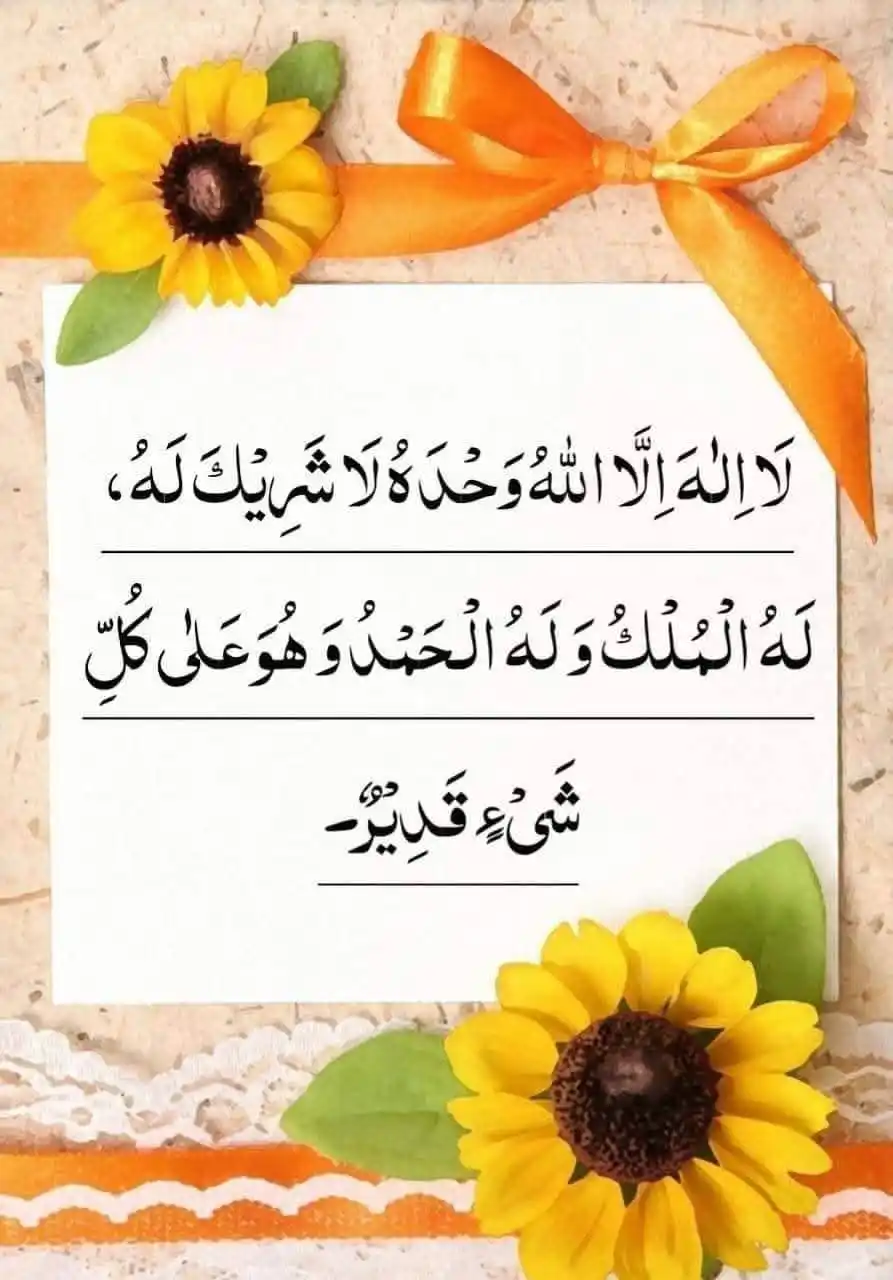 لَا اِلٰهَ اِلَّا اللّٰهُ وَحْدَهٗ لَا شَرِيْكَ لَهُ،
لَهُ الْمُلْكُ وَلَهُ الْحَمْدُ وَهُوَ عَلٰى كُلِّ
شَىْءٍ قَدِيْرٌ۔